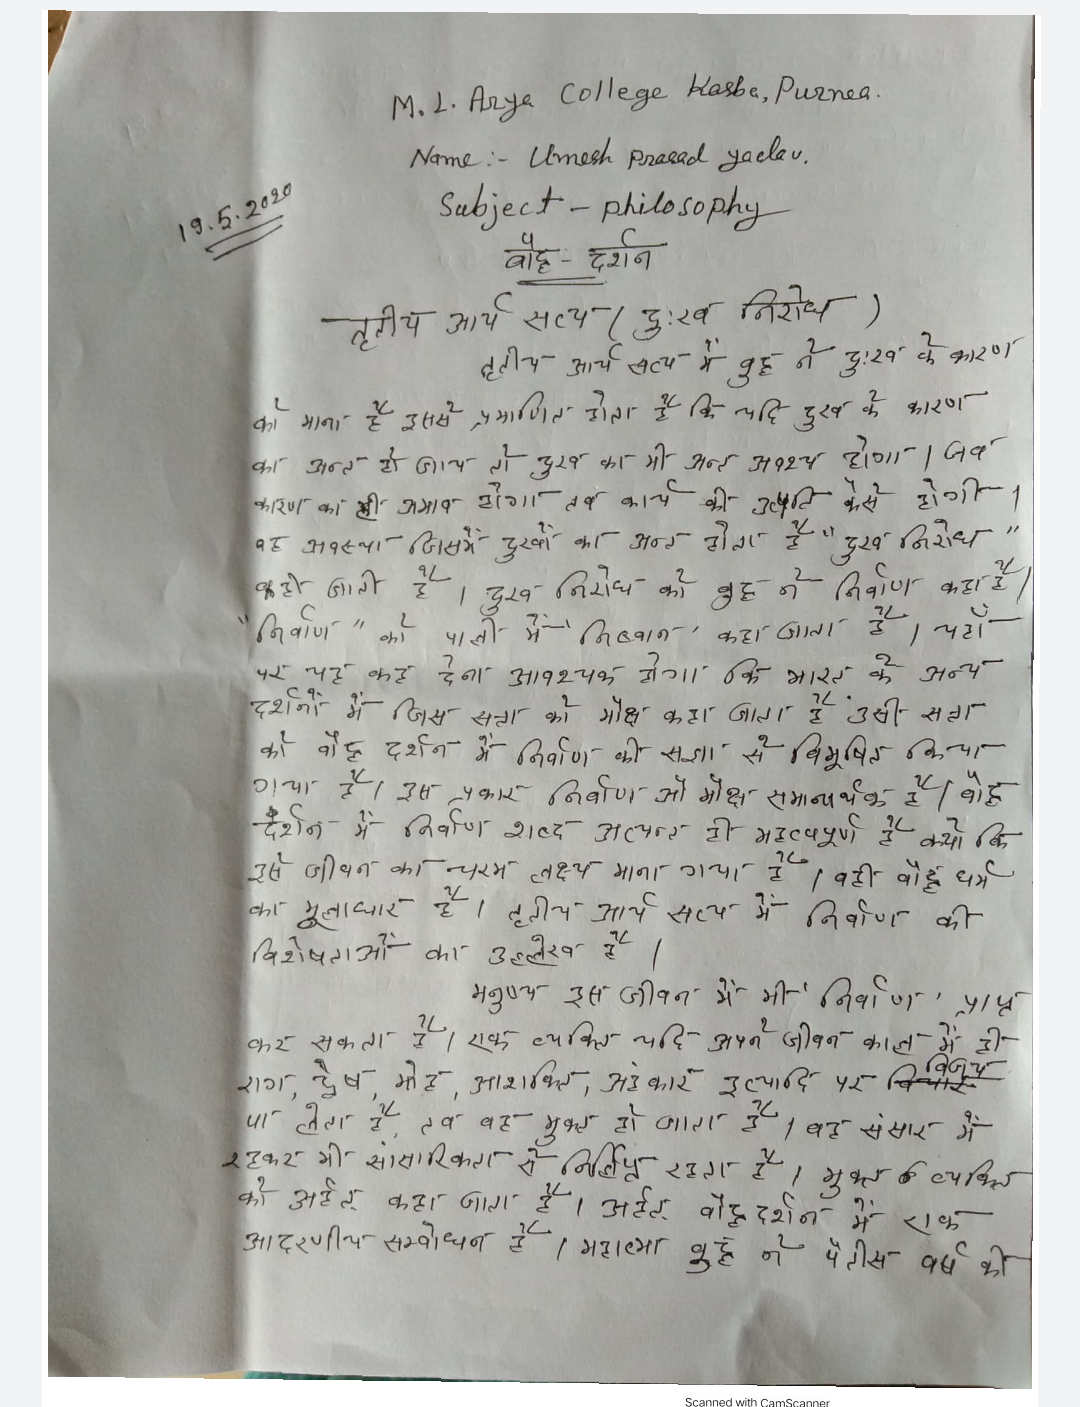 M. L. Arya College Kasba, Purnea.
Name :- Umesh Prasad yadav.
19.5.2020
Subject - philosophy
बौद्ध - दर्शन
तृतीय आर्य सत्य ( दुःख निरोध )
तृतीय आर्य सत्य में बुद्ध ने दुःख के कारण
को माना है इससे प्रमाणित होता है कि यदि दुख के कारण
का अन्त हो जाय तो दुख का भी अन्त अवश्य होगा । जब
कारण का ही अभाव होगा तब कार्य की उत्पति कैसे होगी ।
वह अवस्था जिसमें दुखों का अन्त होता है "दुख निरोध"
कही जाती है । दुख निरोध को बुद्ध ने निर्वाण कहा है ।
"निर्वाण" को पाली में 'निब्बान' कहा जाता है । यहाँ
पर यह कह देना आवश्यक होगा कि भारत के अन्य
दर्शनों में जिस सत्ता को मोक्ष कहा जाता है उसी सत्ता
को बौद्ध दर्शन में निर्वाण की संज्ञा से विभूषित किया
गया है । इस प्रकार निर्वाण औ मोक्ष समानार्थक है । बौद्ध
दर्शन में निर्वाण शब्द अत्यन्त ही महत्वपूर्ण है क्यों कि
इसे जीवन का चरम लक्ष्य माना गया है । वही बौद्ध धर्म
का मूलाधार है । तृतीय आर्य सत्य में निर्वाण की
विशेषताओं का उल्लेख है ।
मनुष्य इस जीवन में भी 'निर्वाण' प्राप्त
कर सकता है । एक व्यक्ति यदि अपने जीवन काल में ही
राग, द्वेष, मोह, आशक्ति, अहंकार इत्यादि पर विजय
पा लेता है, तब वह मुक्त हो जाता है । वह संसार में
रहकर भी सांसारिकता से निर्लिप्त रहता है । मुक्त व्यक्ति
को अर्हत् कहा जाता है । अर्हत् बौद्ध दर्शन में एक
आदरणीय सम्बोधन है । महात्मा बुद्ध ने पैंतीस वर्ष की
Scanned with CamScanner